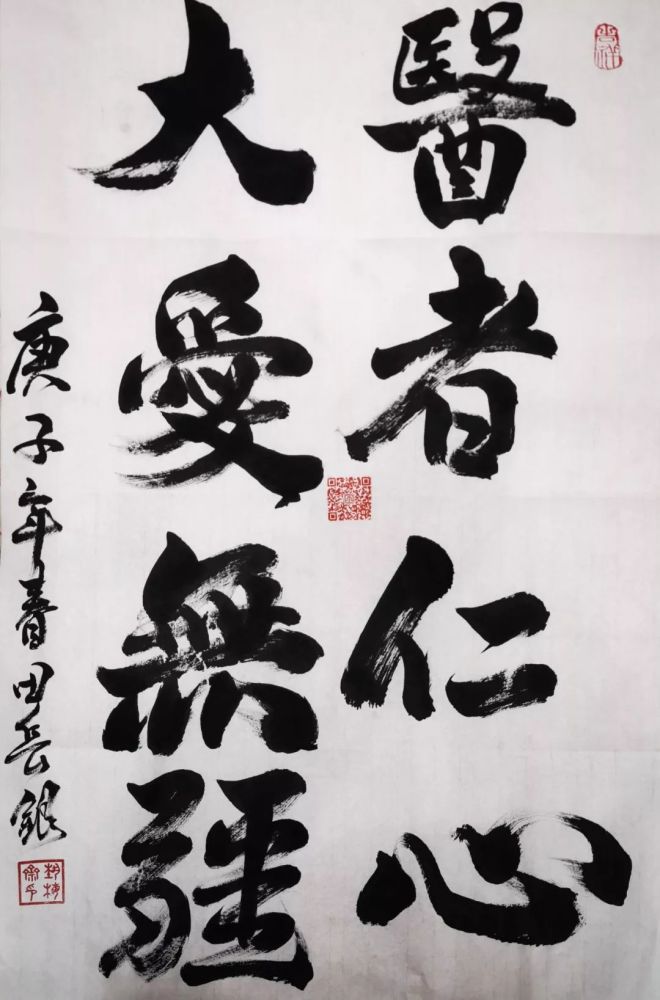 醫者仁心
大愛無疆
庚子年春田岳銀